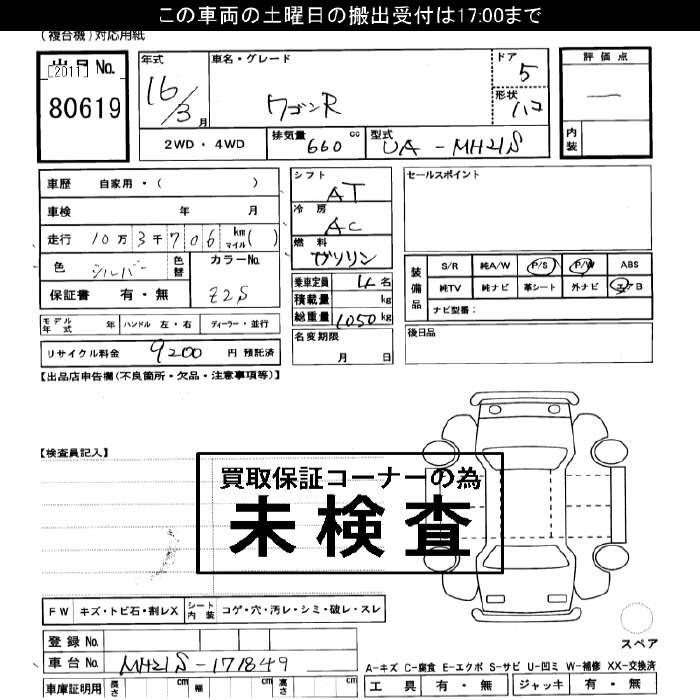 この車両の土曜日の搬出受付は17:00まで
(複合機)対応用紙
出品 No.
[2011]
80619
年式
16/3 月
車名・グレード
ワゴンR
ドア
5
形状
ハコ
評価点
—
内装
2WD ・ 4WD
排気量
660 cc
型式
UA - MH21S
車歴 自家用・( )
車検 年 月
走行 10万 3千 7 0 6 km マイル( )
色 シルバー 色替 カラーNo.
Z2S
保証書 有・無
モデル年式 年 ハンドル 左・右 ディーラー・並行
リサイクル料金 9200 円 預託済
シフト
AT
冷房
AC
燃料
ガソリン
乗車定員 4 名
積載量 kg
総重量 1050 kg
名変期限
月 日
セールスポイント
装備品
S/R 純A/W P/S P/W ABS
純TV 純ナビ 革シート 外ナビ エアB
ナビ型番:
後日品
【出品店申告欄(不良箇所・欠品・注意事項等)】
【検査員記入】
買取保証コーナーの為
未検査
FW キズ・トビ石・割レX シート内装 コゲ・穴・汚レ・シミ・破レ・スレ
スペア
登録 No.
車台 No. MH21S-171849
車庫証明用 長さ cm 幅 cm 高さ cm
A-キズ C-腐食 E-エクボ S-サビ U-凹ミ W-補修 XX-交換済
工具 有・無 ジャッキ 有・無